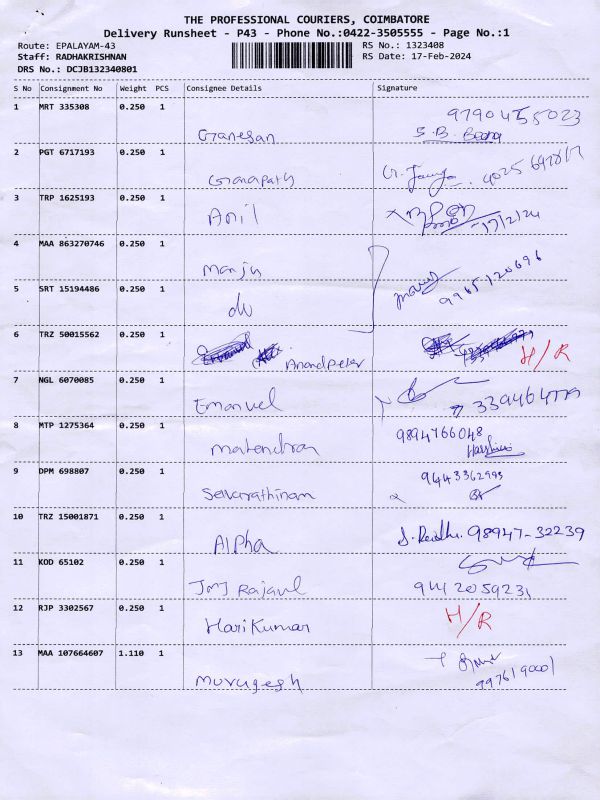 THE PROFESSIONAL COURIERS, COIMBATORE
Delivery Runsheet - P43 - Phone No.:0422-3505555 - Page No.:1
Route: EPALAYAM-43 RS No.: 1323408
Staff: RADHAKRISHNAN RS Date: 17-Feb-2024
DRS No.: DCJB132340801
S No Consignment No Weight PCS Consignee Details Signature
1 MRT 335308 0.250 1 9790455023
Ganesan S.B.
2 PGT 6717193 0.250 1
Ganapathy
3 TRP 1625193 0.250 1
Anil 17/2/24
4 MAA 863270746 0.250 1
Manju
5 SRT 15194486 0.250 1 9965120696
do
6 TRZ 50015562 0.250 1
Anandpeter H/R
7 NGL 6070085 0.250 1
Emanuel
8 MTP 1275364 0.250 1 9894766048
Mahendran
9 DPM 698807 0.250 1 9443362993
Selvarathinam
10 TRZ 15001871 0.250 1
Alpha 98947-32239
11 KOD 65102 0.250 1
JMJ Rajavel 9442059231
12 RJP 3302567 0.250 1 H/R
HariKumar
13 MAA 107664607 1.110 1
Murugesh 9976190001